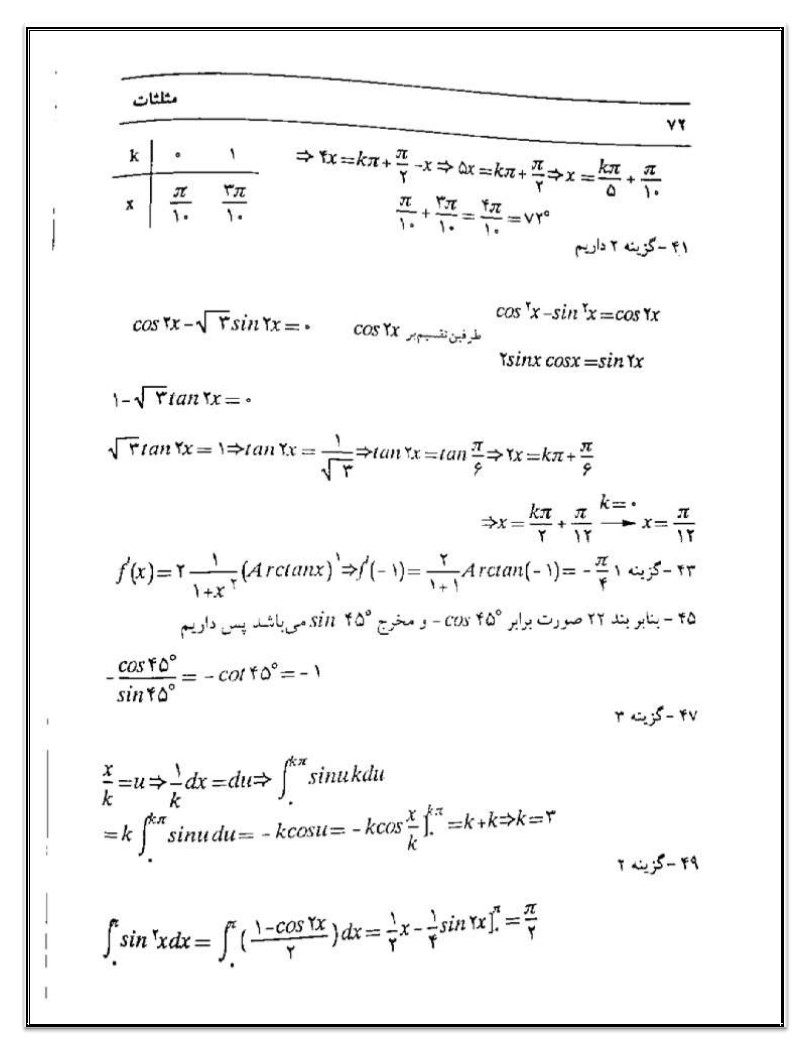 مثلثات
۷۲
k | ۰ ۱
x | π/۱۰ ۳π/۱۰
⇒ ۴x = kπ + π/۲ - x ⇒ ۵x = kπ + π/۲ ⇒ x = kπ/۵ + π/۱۰
π/۱۰ + ۳π/۱۰ = ۴π/۱۰ = ۷۲°
۴۱ - گزینه ۲ داریم
cos²x - sin²x = cos۲x
cos۲x - √۳ sin۲x = ۰ طرفین تقسیم بر cos۲x
۲sinx cosx = sin۲x
۱ - √۳ tan۲x = ۰
√۳ tan۲x = ۱ ⇒ tan۲x = ۱/√۳ ⇒ tan۲x = tan π/۶ ⇒ ۲x = kπ + π/۶
⇒ x = kπ/۲ + π/۱۲ k=۰ → x = π/۱۲
۴۳ - گزینه ۱ f′(x) = ۲ ۱/(۱+x²) (Arctanx)¹ ⇒ f′(-۱) = ۲/(۱+۱) Arctan(-۱) = -π/۴
۴۵ - بنابر بند ۲۲ صورت برابر -cos ۴۵° و مخرج sin ۴۵° می‌باشد پس داریم
-cos۴۵°/sin۴۵° = -cot۴۵° = -۱
۴۷ - گزینه ۳
x/k = u ⇒ ۱/k dx = du ⇒ ∫₀^kπ sinukdu
= k ∫₀^kπ sinudu = -kcosu = -kcos x/k ]₀^kπ = k+k ⇒ k=۳
۴۹ - گزینه ۲
∫₀^π sin²xdx = ∫₀^π (۱-cos۲x/۲)dx = ۱/۲ x - ۱/۴ sin۲x]₀^π = π/۲